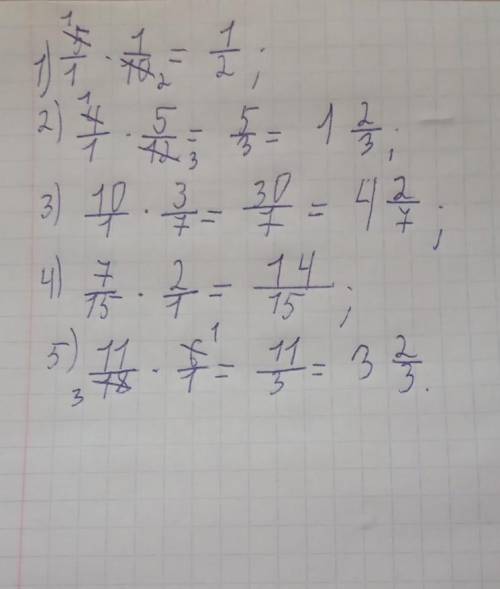 1) 5/1 1 · 1/10 2 = 1/2;
2) 4/1 1 · 5/12 3 = 5/3 = 1 2/3;
3) 10/1 · 3/7 = 30/7 = 4 2/7;
4) 7/15 · 2/1 = 14/15;
5) 11/18 3 · 6/1 1 = 11/3 = 3 2/3.